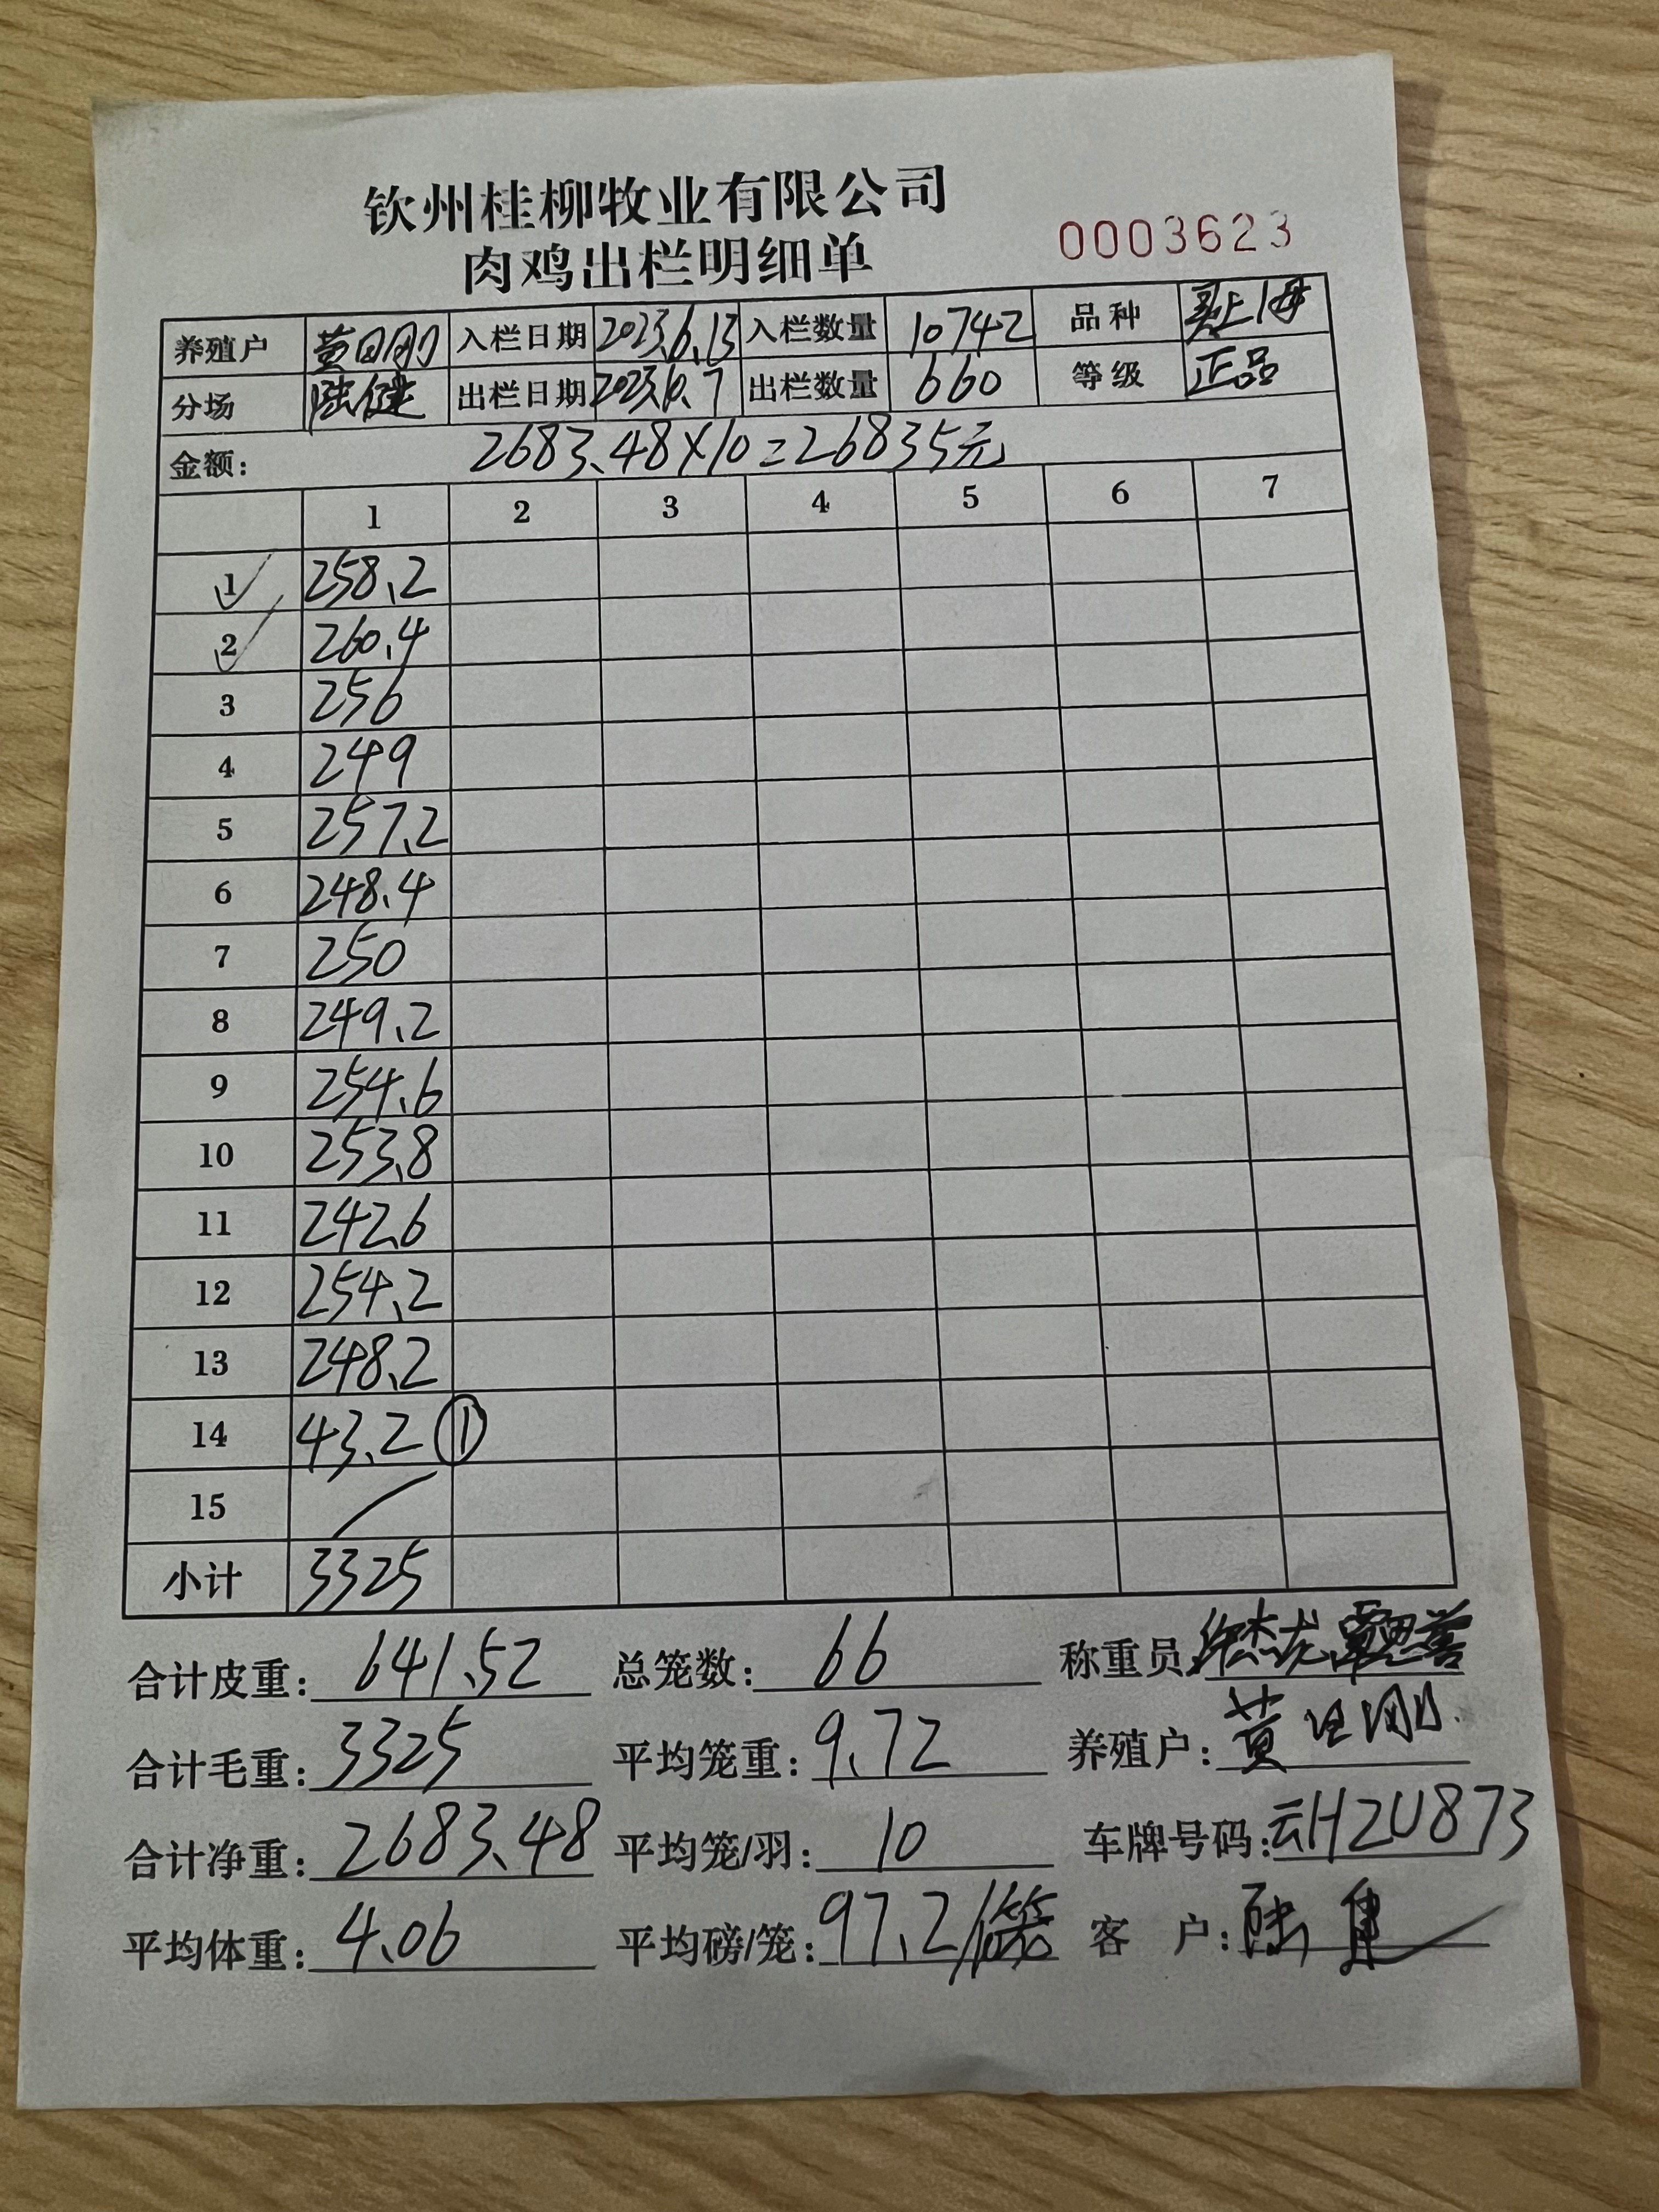 钦州桂柳牧业有限公司
肉鸡出栏明细单
0003623
养殖户 黄日刚 入栏日期 2023.6.13 入栏数量 10742 品种
分场 陆健 出栏日期 2023.10.7 出栏数量 660 等级 正品
金额: 2683.48×10=26835元
1 2 3 4 5 6 7
1 258.2
2 260.4
3 256
4 249
5 257.2
6 248.4
7 250
8 249.2
9 254.6
10 253.8
11 242.6
12 254.2
13 248.2
14 43.2 ①
15
小计 3325
合计皮重: 641.52 总笼数: 66 称重员
合计毛重: 3325 平均笼重: 9.72 养殖户: 黄日刚
合计净重: 2683.48 平均笼/羽: 10 车牌号码: 云H2U873
平均体重: 4.06 平均磅/笼: 97.2/ 客户: 陆